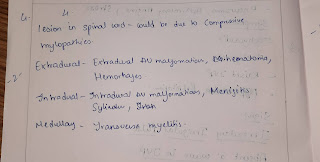 4
lesion in spinal cord - could be due to Compressive
mylopathies.
Extradural - Extradural AV malformation,
Hemorrhages.
Intradural - Intradural AV malformation,
Medullary - Transverse myelitis.